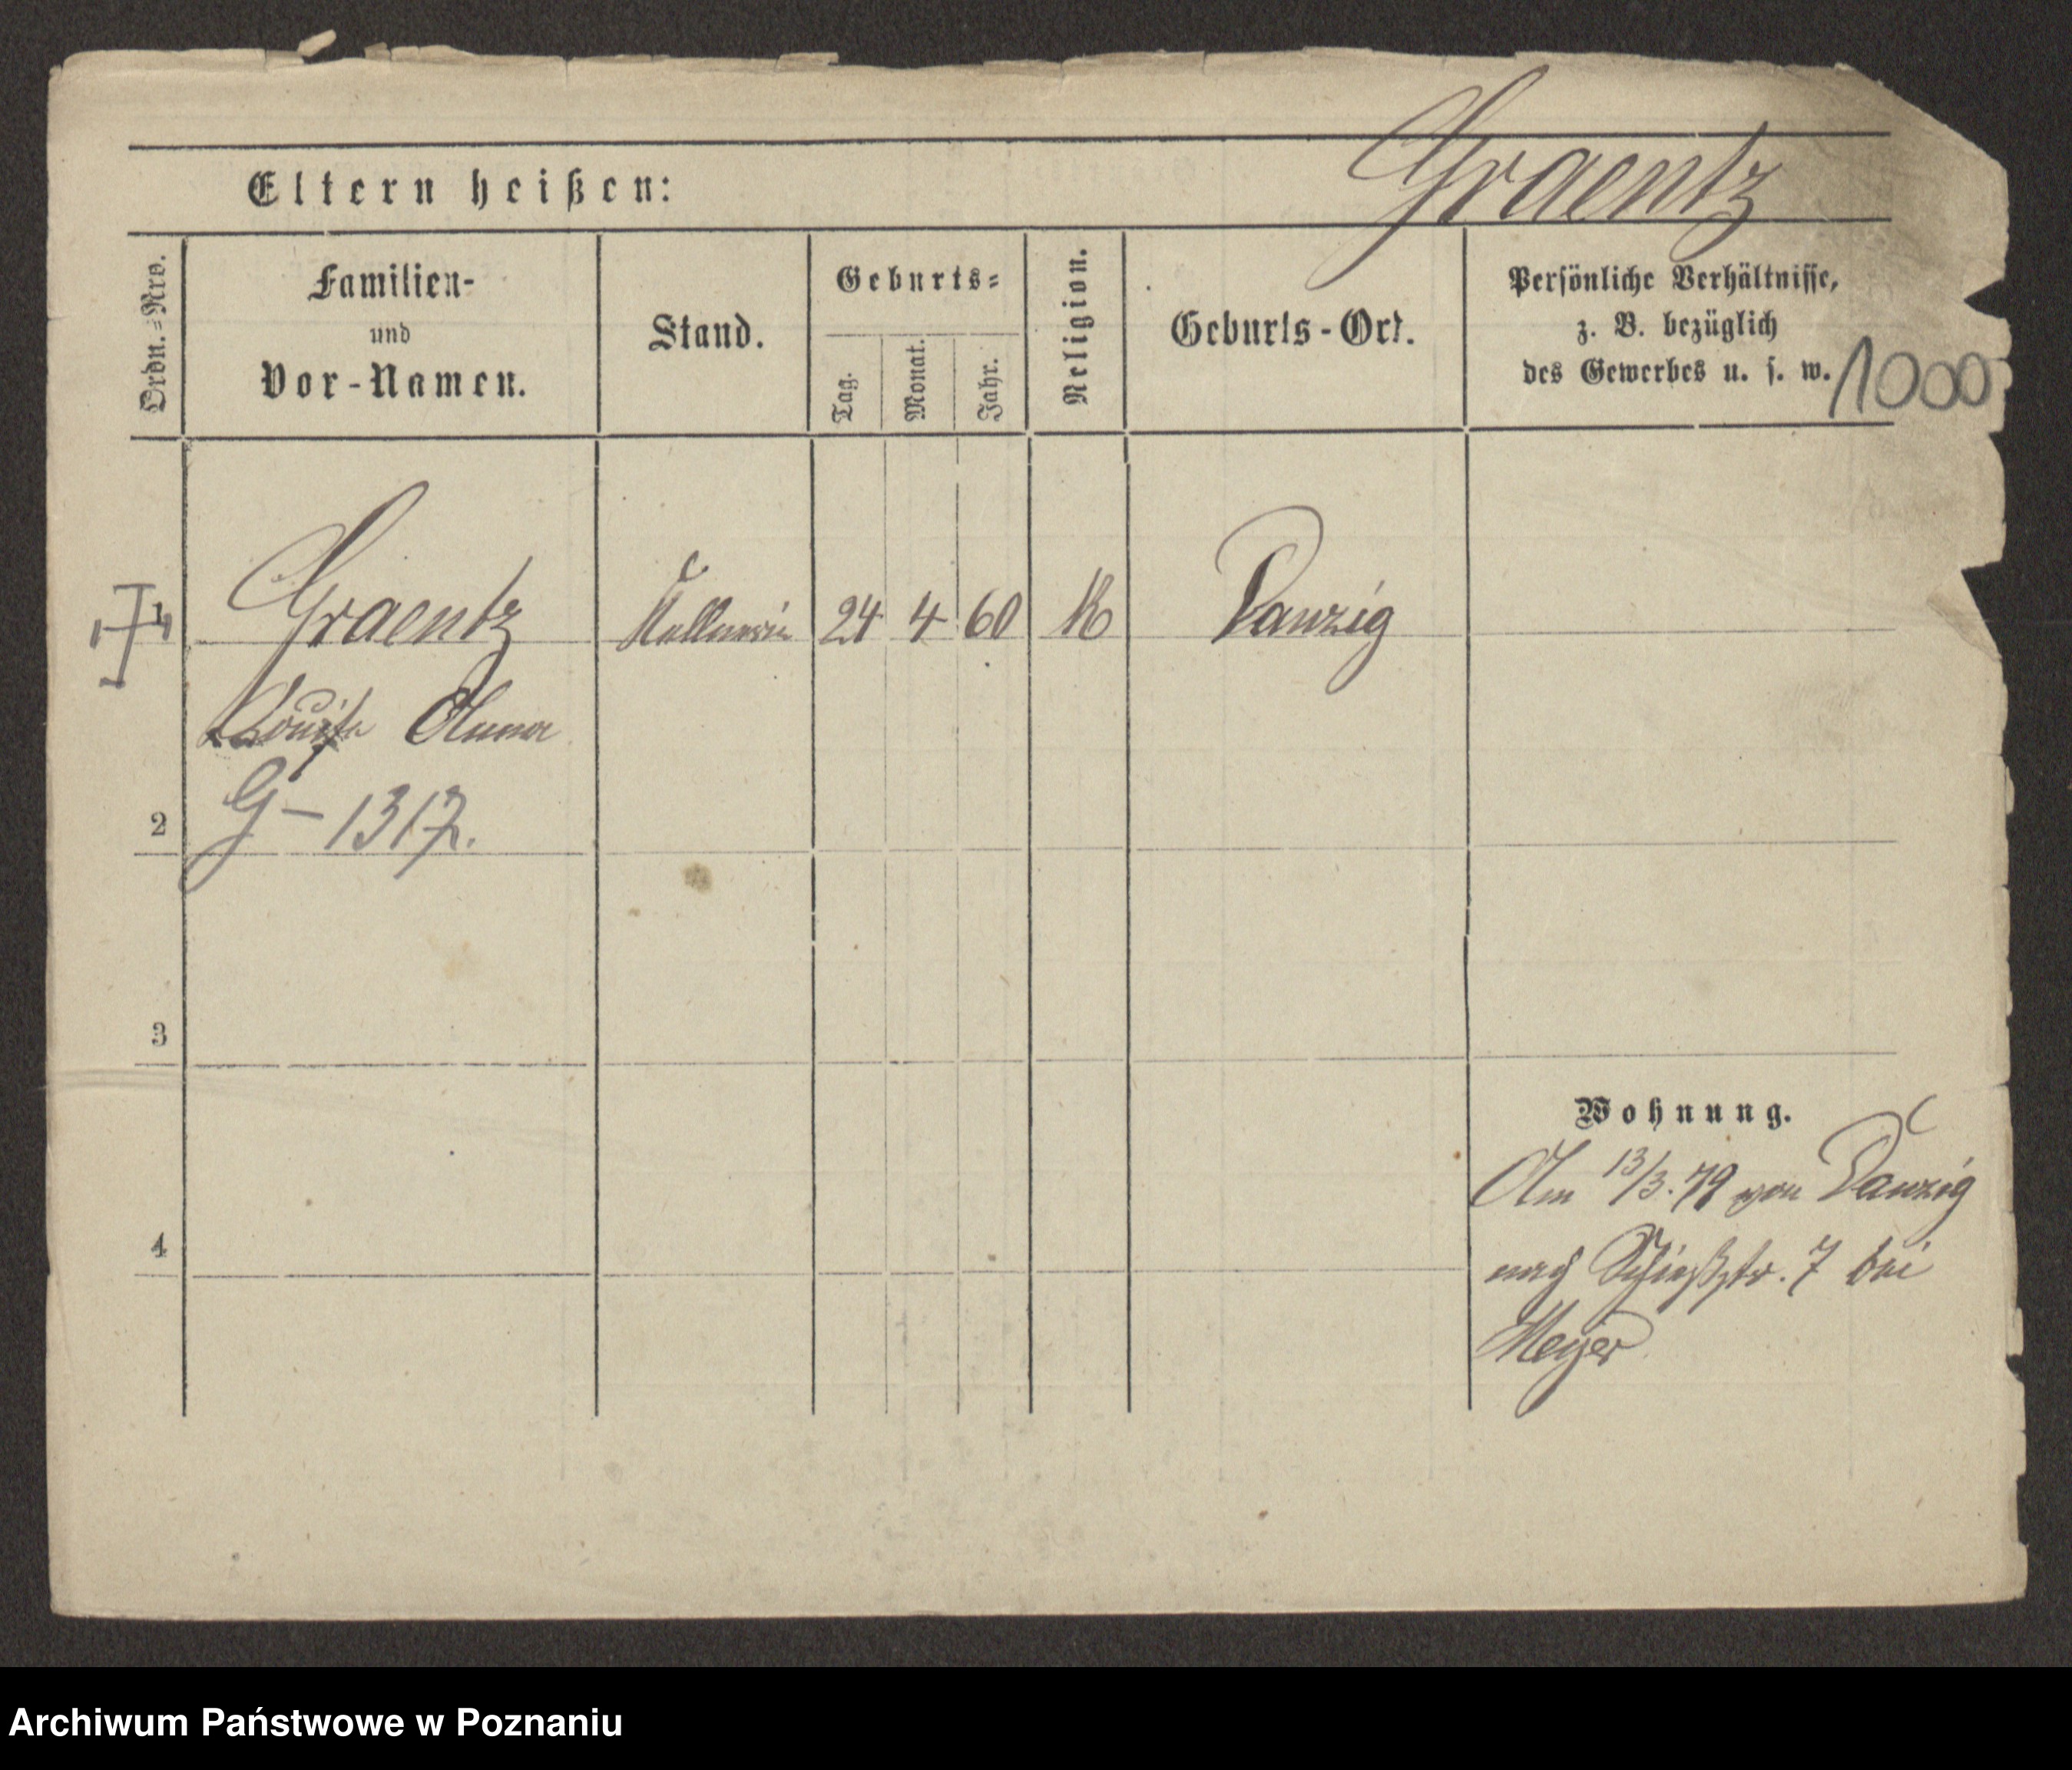 Graentz
Eltern heißen:
Ordn.-Nro.
Familien-
und
Vor-Namen.
Stand.
Geburts-
Tag.
Monat.
Jahr.
Religion.
Geburts-Ort.
Persönliche Verhältnisse,
z. B. bezüglich
des Gewerbes u. s. w.
1000
1 Graentz Kellnerin 24 4 60 K Danzig
Louise Anna
2 G-1317.
3
4
Wohnung.
Am 13/3. 79 von Danzig
nach Schießstr. 7 bei
Meyer
Archiwum Państwowe w Poznaniu